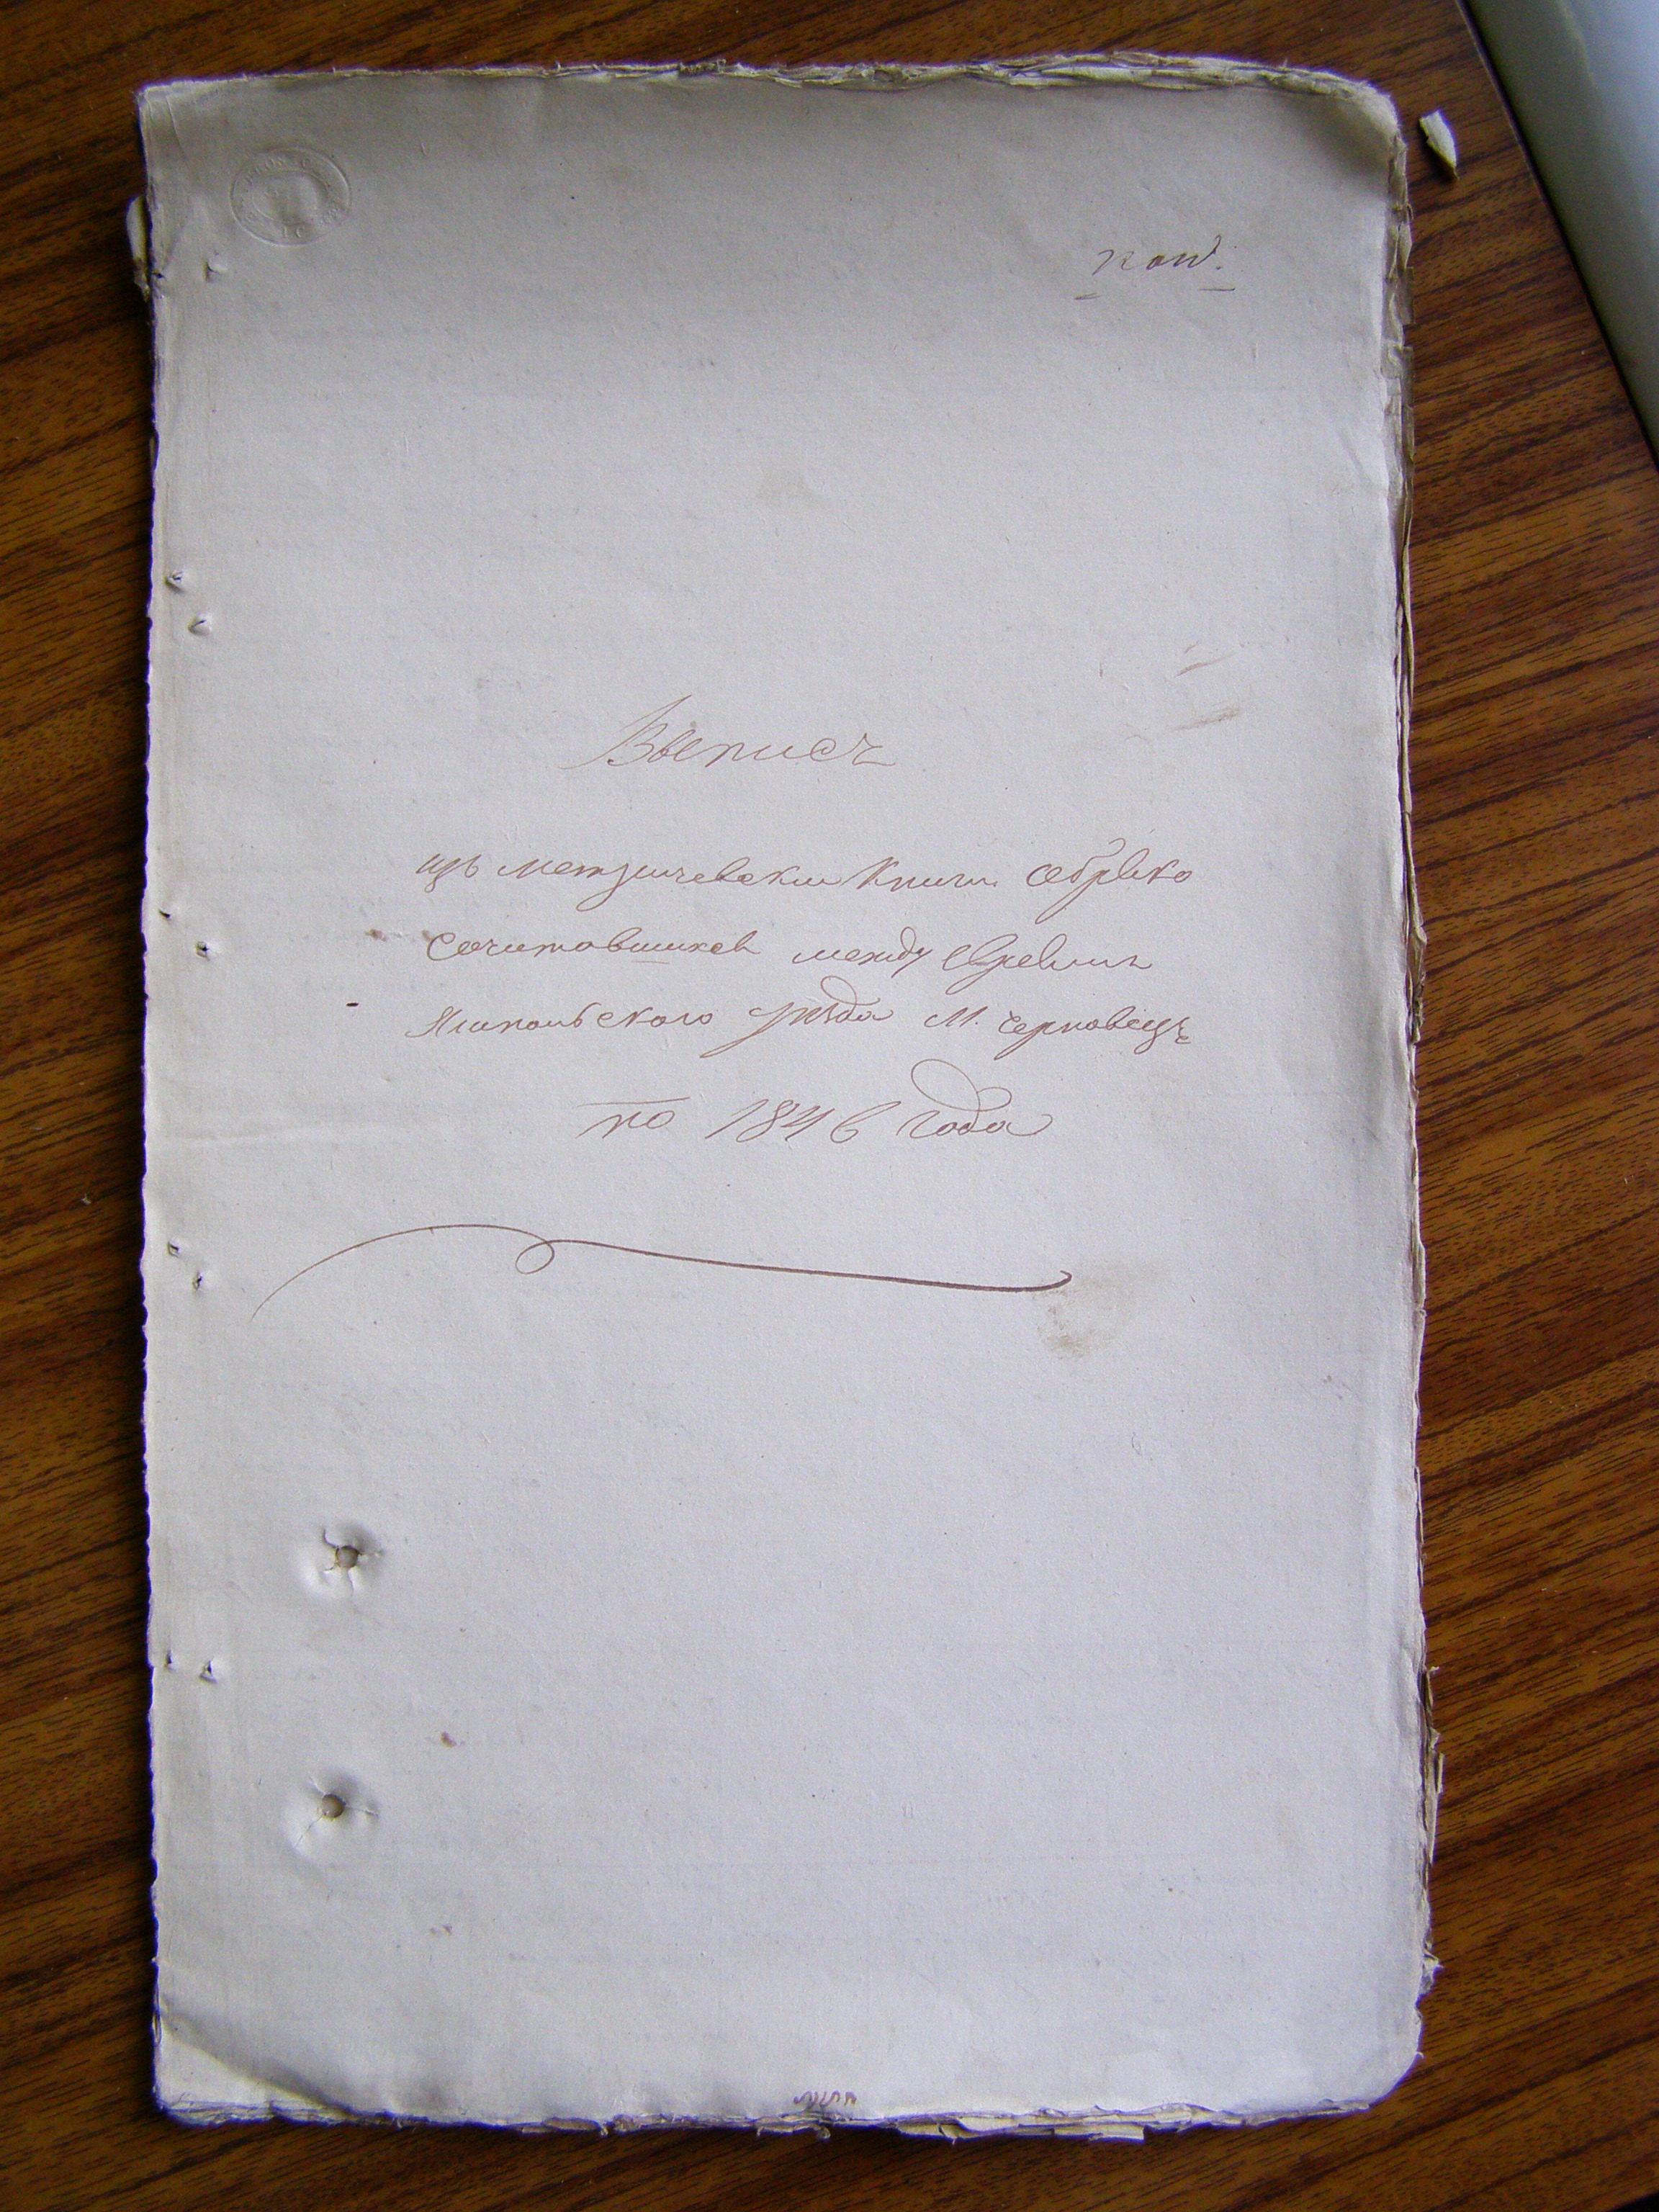 Выпись
изъ метрической Книги обрако
сочитавшихся между Евреями
Ямпольского уезда М. Черновецъ
по 1846 года